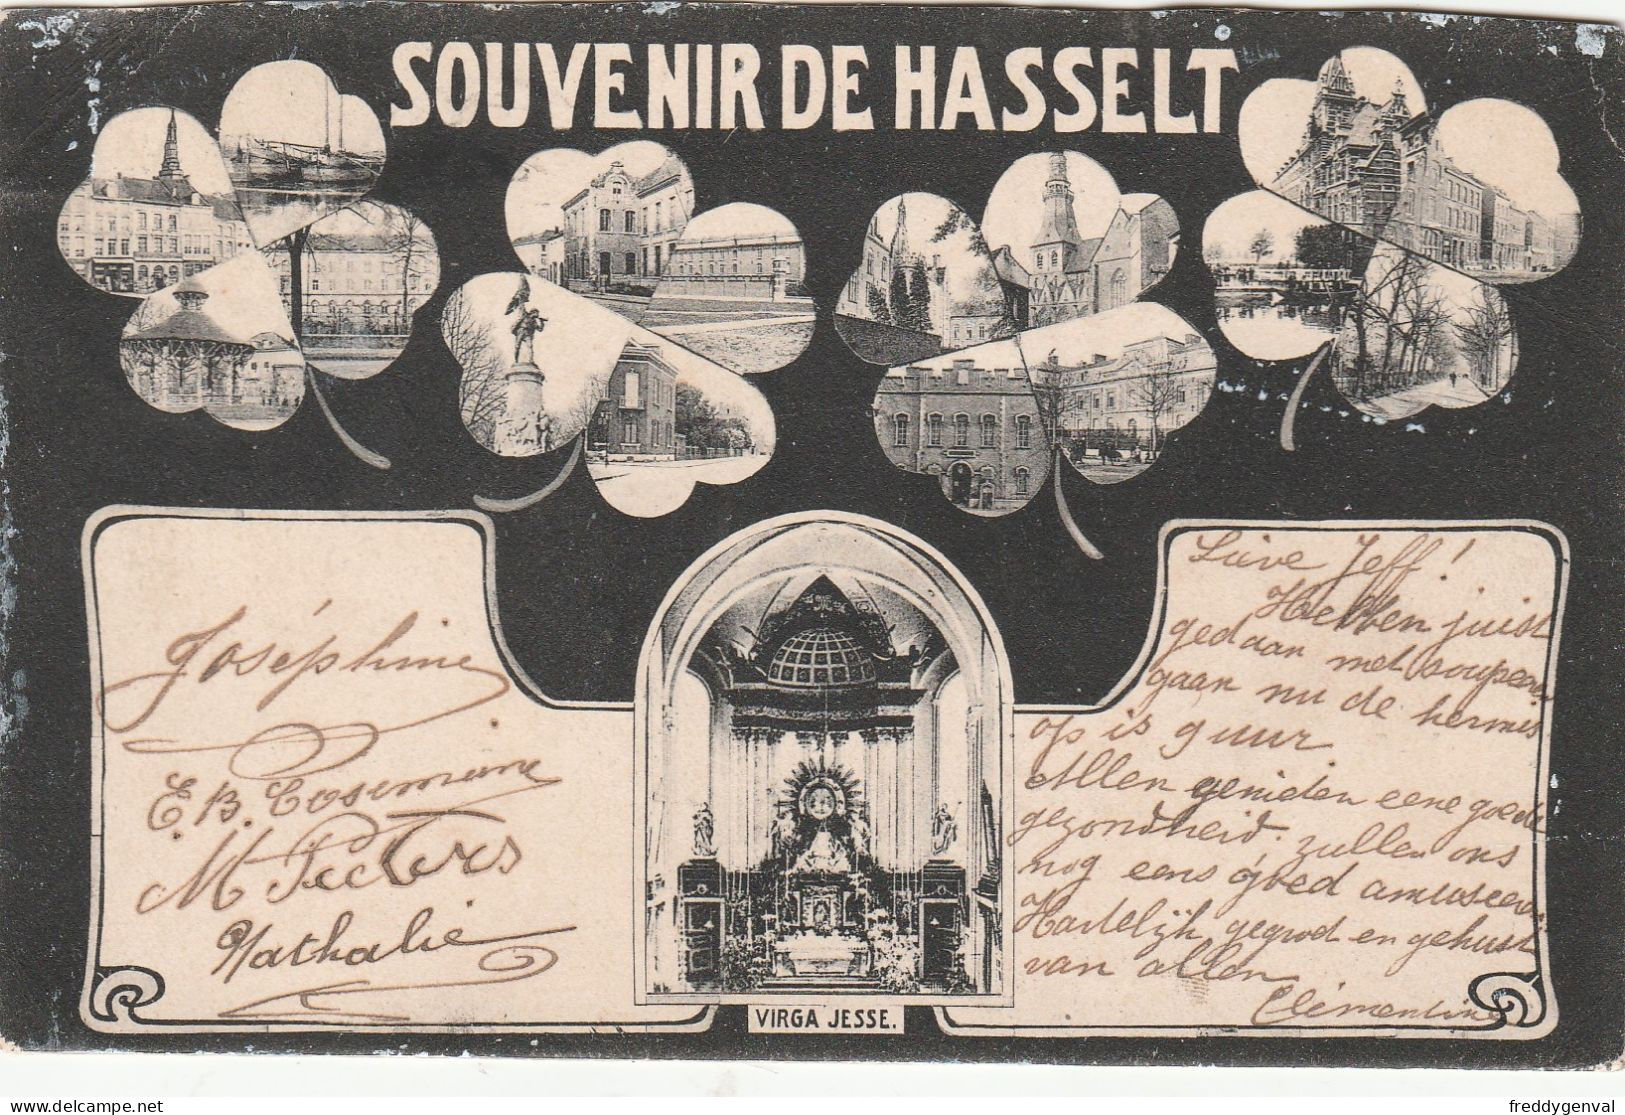 SOUVENIR DE HASSELT
Joséphine
E. B. Cosemans
M Peeters
Nathalie
VIRGA JESSE.
Lieve Jeff!
Hebben juist
gedaan met soupeeren
gaan nu de kermis
op is 9 uur
Allen genieten eene goede
gezondheid. zullen ons
nog eens goed amuseeren
Hartelijk gegroet en gekust
van allen
Clémentine
freddygenval